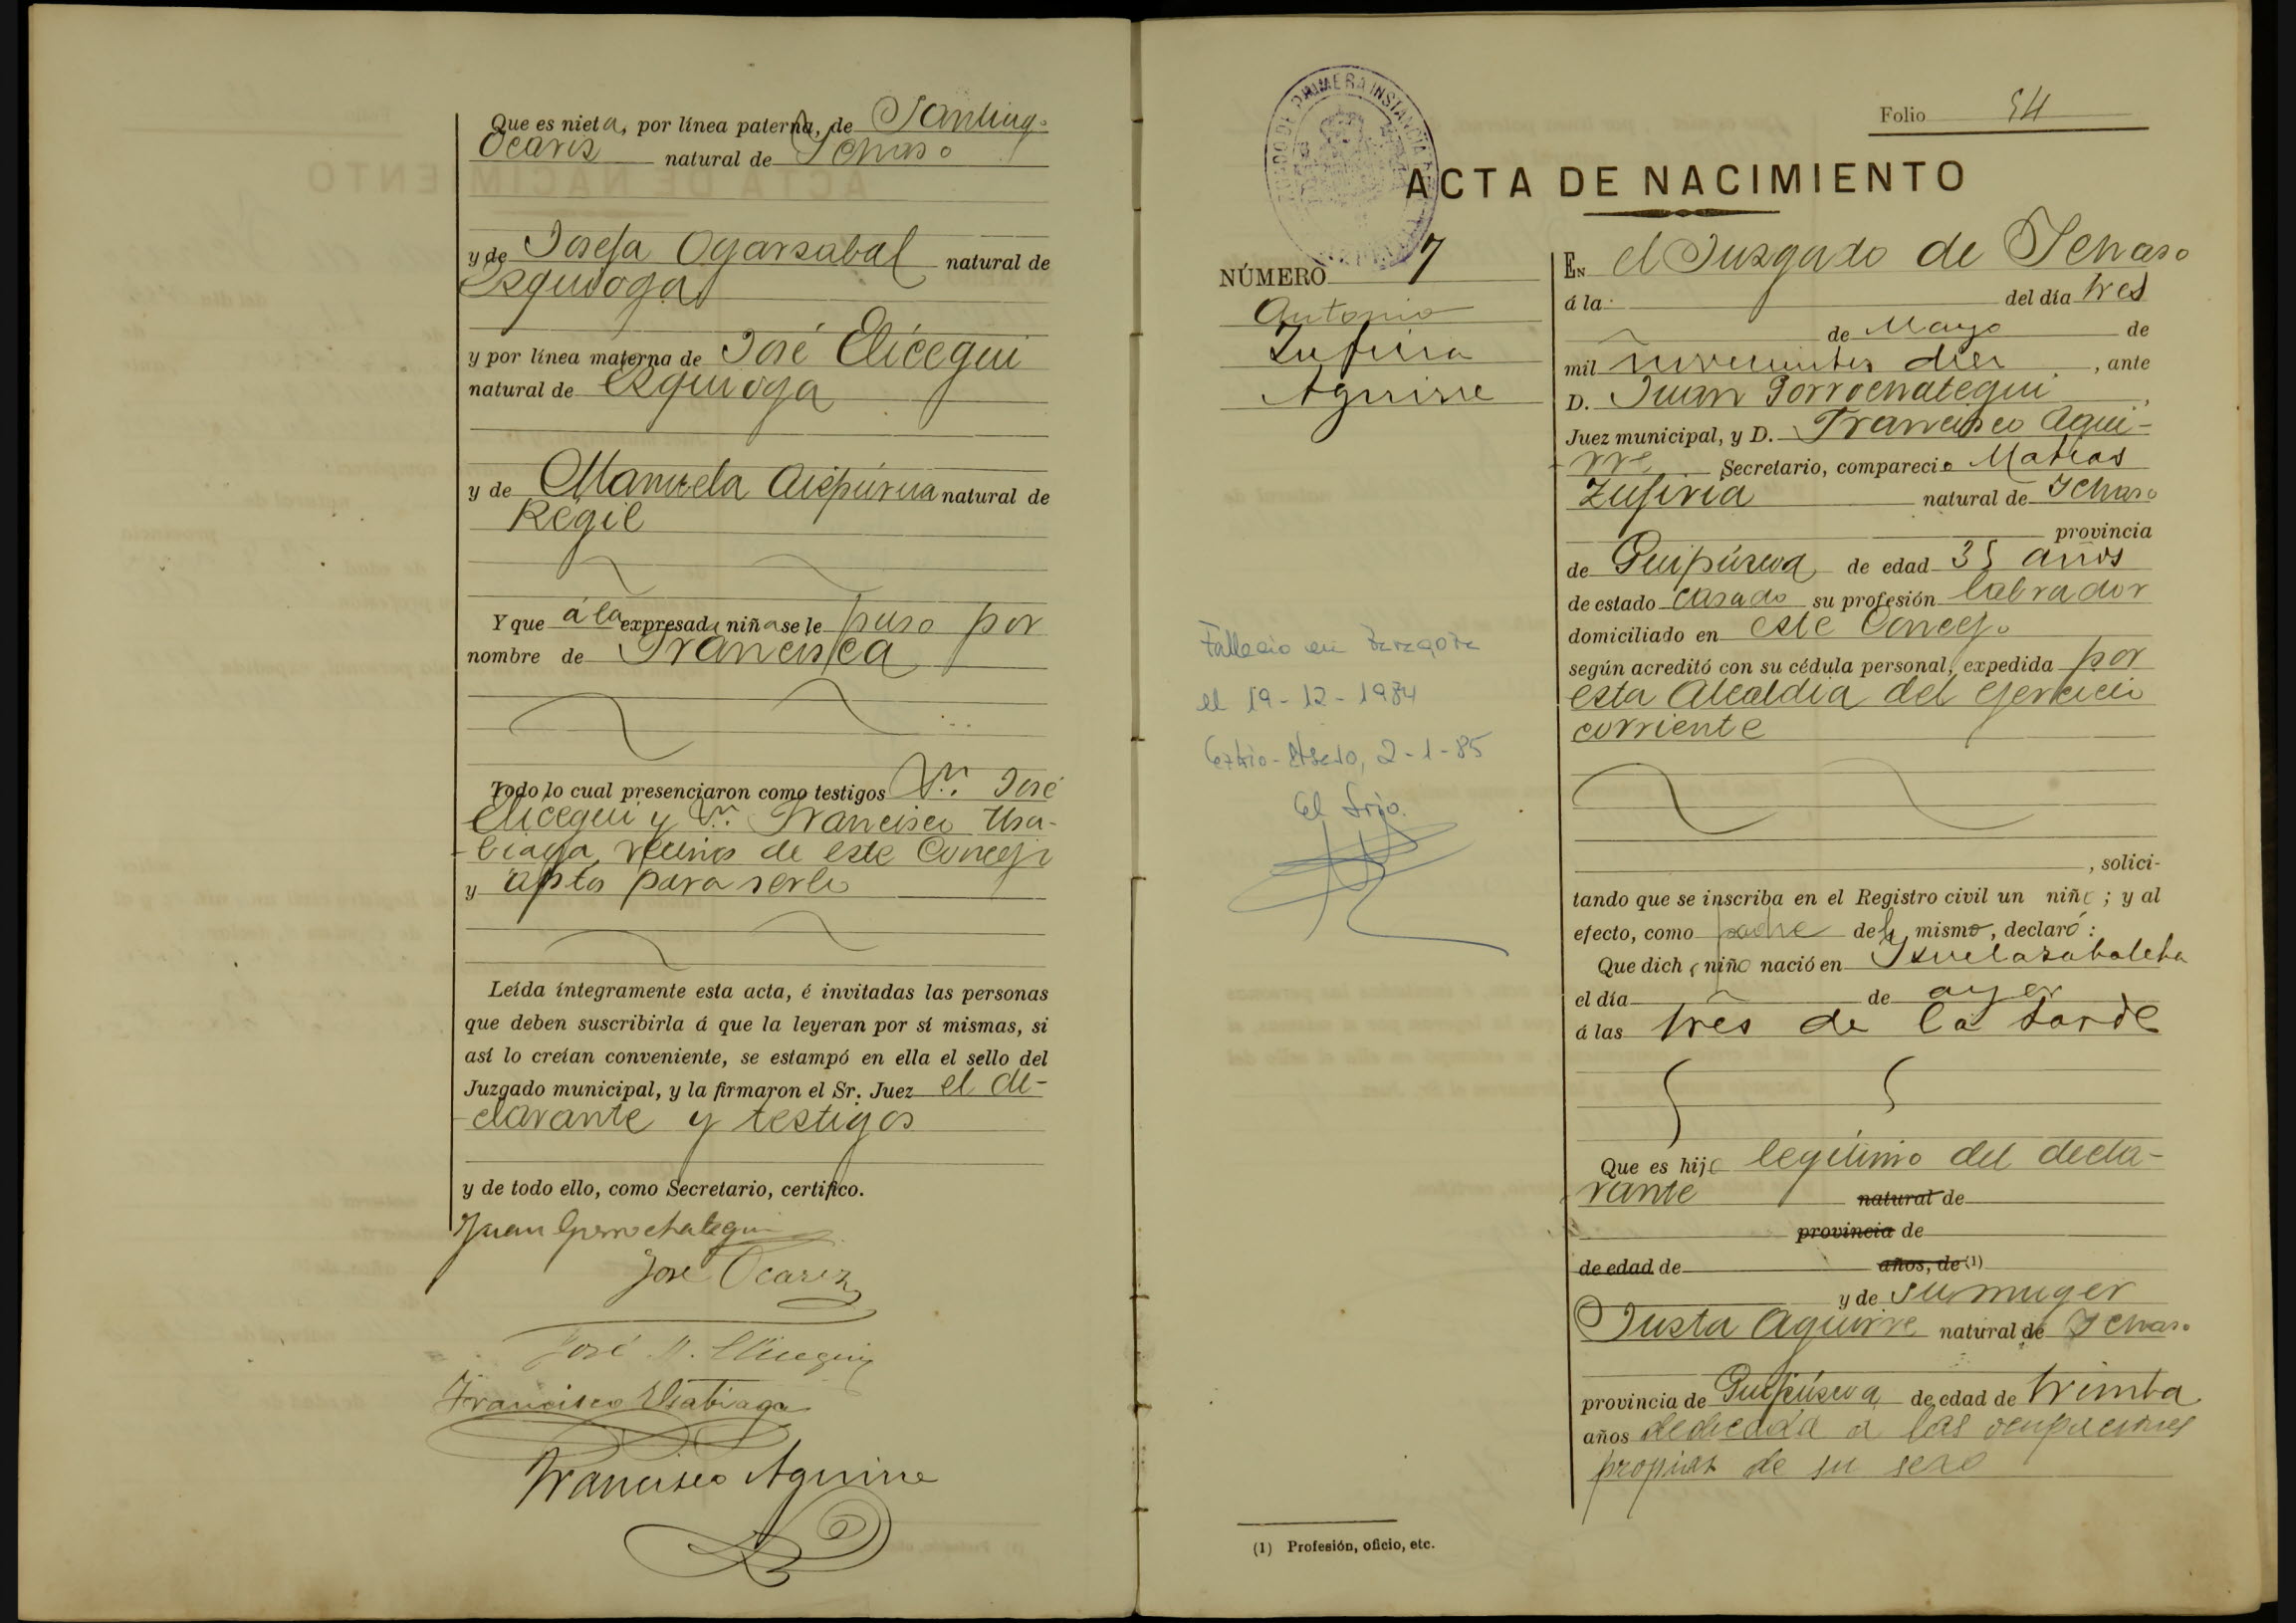 Que es nieta, por línea paterna, de Santiago
Ocariz natural de Ichaso
y de Josefa Ogarzabal natural de
Ezquioga
y por línea materna de José Elicegui
natural de Ezquioga
y de Manuela Aizpurua natural de
Regil
Y que á la expresada niña se le puso por
nombre de Francisca
Todo lo cual presenciaron como testigos Dn. José
Elicegui y Dn. Francisco Usa-
biaga, vecinos de este Concejo
y aptos para serlo
Leída íntegramente esta acta, é invitadas las personas
que deben suscribirla á que la leyeran por sí mismas, si
así lo creían conveniente, se estampó en ella el sello del
Juzgado municipal, y la firmaron el Sr. Juez el de-
clarante y testigos
y de todo ello, como Secretario, certifico.
Juan Gorrochategui
José Ocariz
José Elicegui
Francisco Usabiaga
Francisco Aguirre
DE PRIMERA INSTANCIA
Folio 54
ACTA DE NACIMIENTO
NÚMERO 7
Antonio
Zufiria
Aguirre
Falleció en Zaragoza
el 19-12-1984
2-1-85
El Srio.
EN el Juzgado de Ichaso
á la del día tres
de Mayo de
mil novecientos diez, ante
D. Juan Gorrochategui,
Juez municipal, y D. Francisco Agui-
rre Secretario, compareció Matias
Zufiria natural de Ichaso
provincia
de Guipúzcoa de edad 35 años
de estado casado su profesión labrador
domiciliado en este Concejo
según acreditó con su cédula personal, expedida por
esta Alcaldia del ejercicio
corriente
, solici-
tando que se inscriba en el Registro civil un niño; y al
efecto, como padre del mismo, declaró:
Que dicho niño nació en
el día de ayer
á las tres de la tarde
Que es hijo legitimo del decla-
rante natural de
provincia de
de edad de años, de (1)
y de su muger
Justa Aguirre natural de Ichaso
provincia de Guipúzcoa de edad de treinta
años dedicada a las ocupaciones
propias de su sexo
(1) Profesión, oficio, etc.